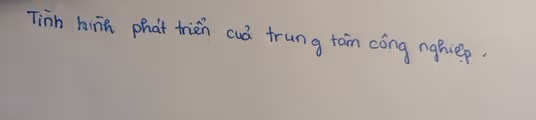 Tình hình phát triển cuả trung tâm công nghiệp.